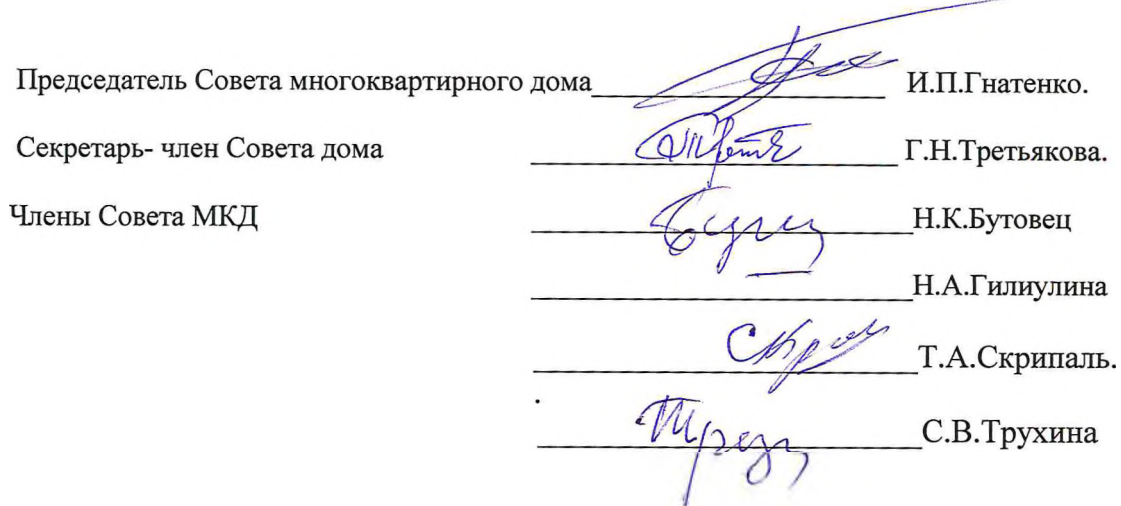 Председатель Совета многоквартирного дома И.П.Гнатенко.
Секретарь- член Совета дома Г.Н.Третьякова.
Члены Совета МКД Н.К.Бутовец
Н.А.Гилиулина
Т.А.Скрипаль.
С.В.Трухина